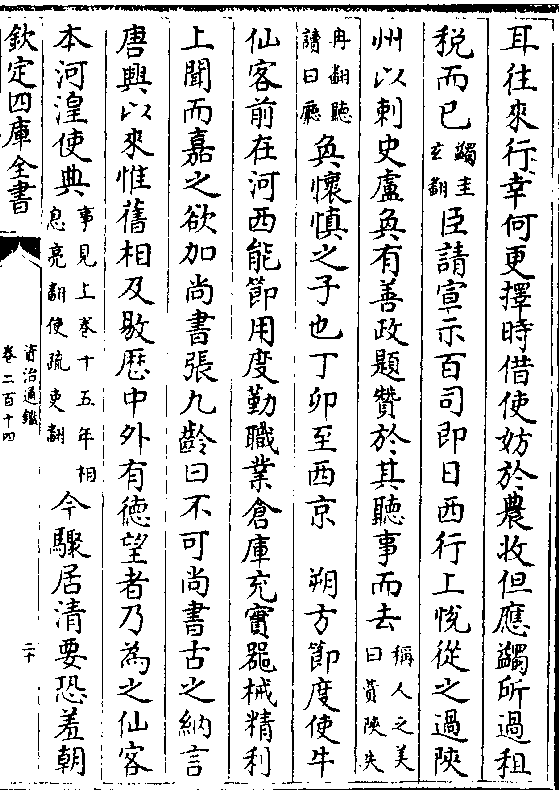 耳往來行幸何更擇時借使妨於農收但應蠲所過租
稅而已蠲圭玄翻臣請宣示百司即日西行上悅從之過陝
州以刺史盧奐有善政題贊於其聽事而去稱人之美曰贊陜失
冉翻聽讀曰廳奐懷慎之子也丁卯至西京　朔方節度使牛
仙客前在河西能節用度勤職業倉庫充實器械精利
上聞而嘉之欲加尚書張九齡曰不可尚書古之納言
唐興以來惟舊相及敭歷中外有德望者乃為之仙客
本河湟使典事見上卷十五年相息亮翻使疏吏翻今驟居清要恐羞朝
欽定四庫全書
資治通鑑
卷二百十四
二十